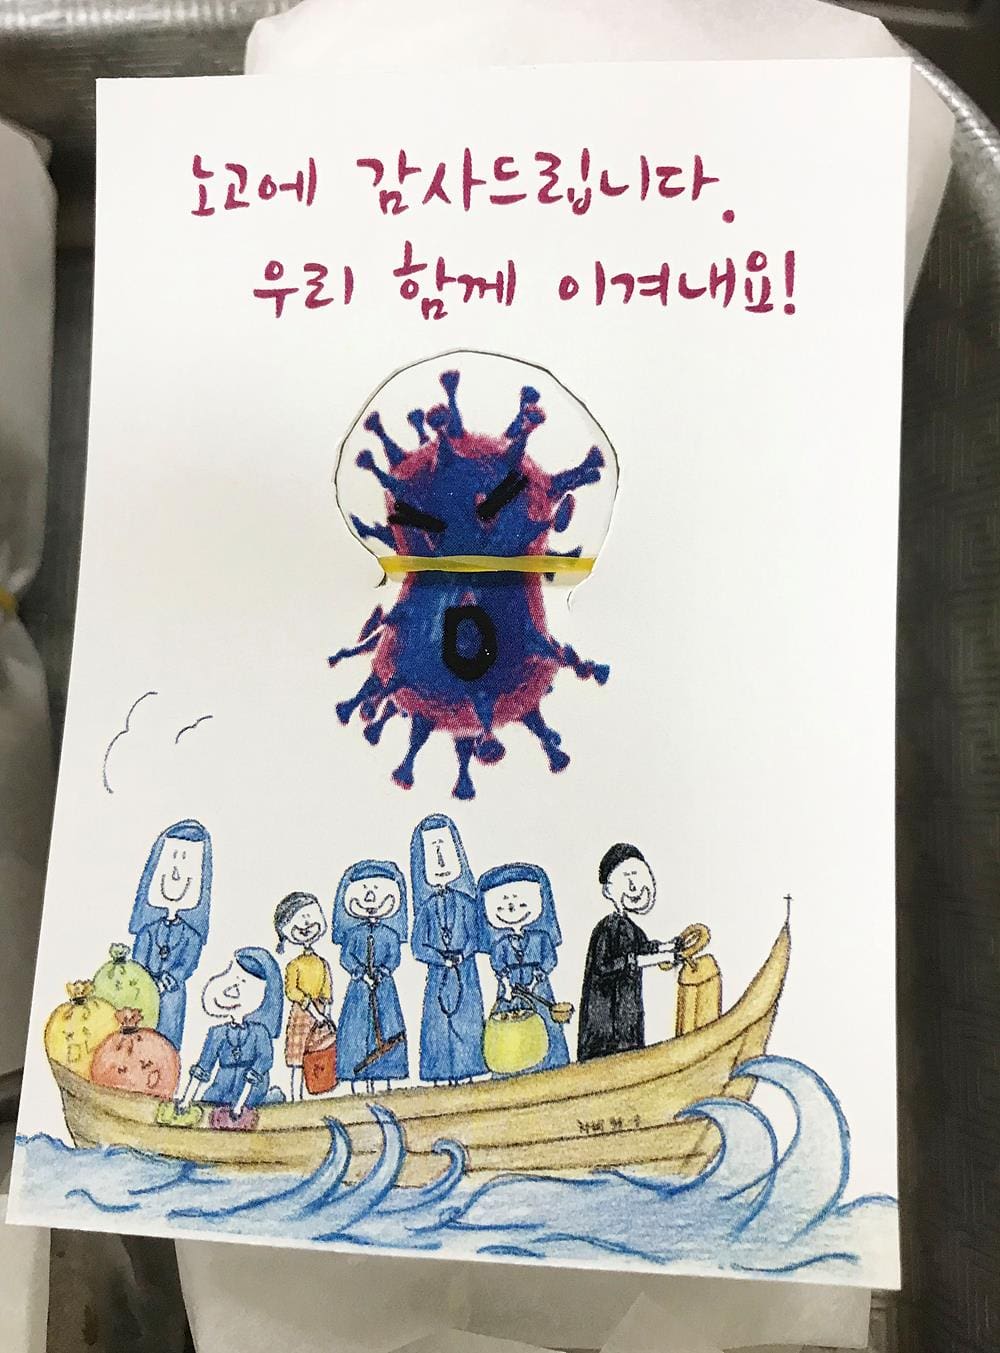 노고에 감사드립니다.
우리 함께 이겨내요!